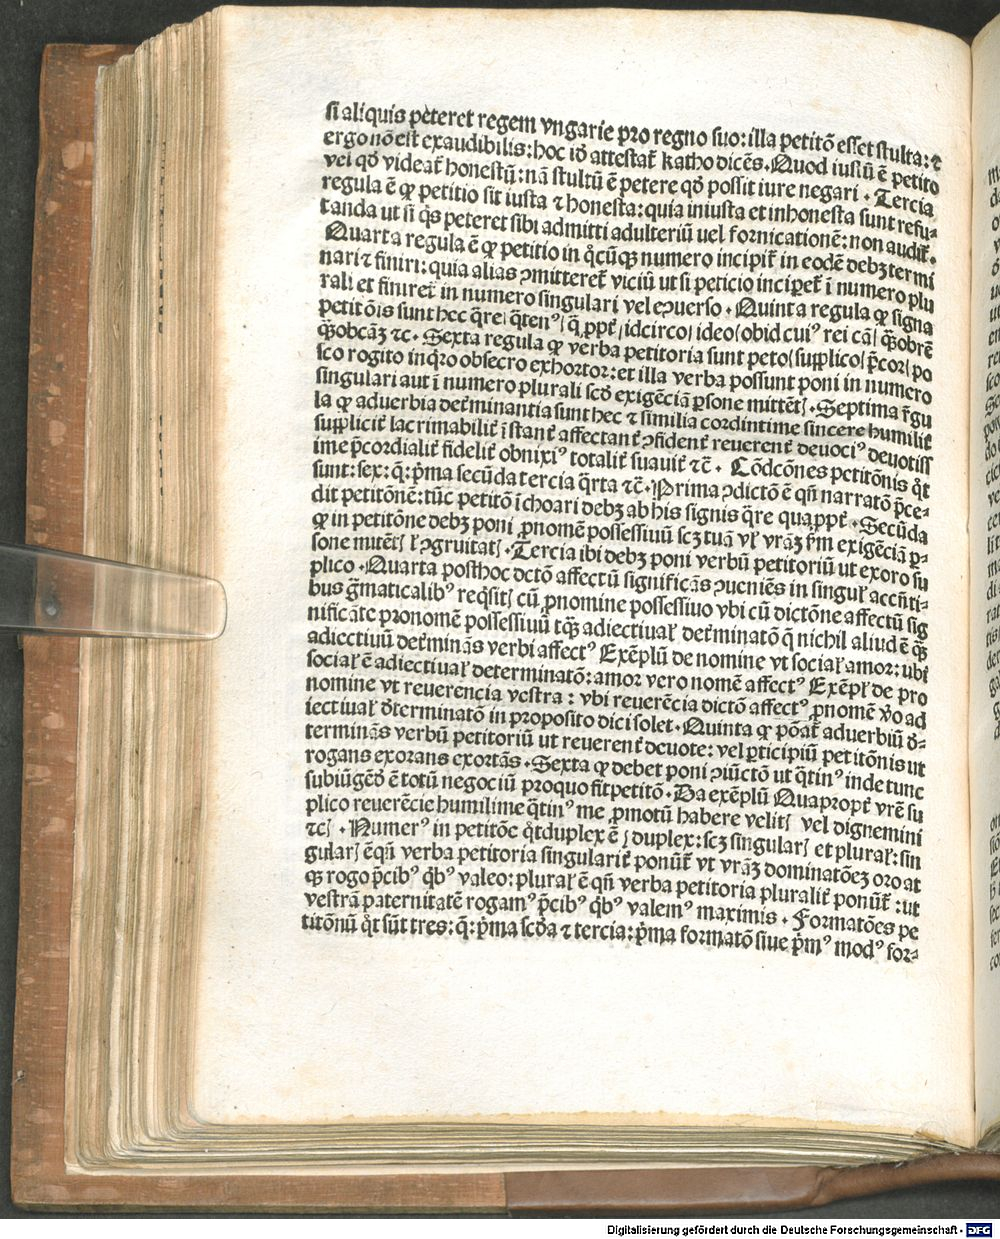 si aliquis peteret regem vngarie pro regno suo: illa petitō esset stulta: ⁊
ergo nō est exaudibilis: hoc iđ attestat᷑ katho dicēs. Quod iusiū ē petito
vel qđ videat᷑ honestū: nā stultū ē petere qđ possit iure negari. Tercia
regula ē ꝙ petitio sit iusta ⁊ honesta: quia iniusta et inhonesta sunt refu⸗
tanda ut si q̄s peteret sibi admitti adulteriū uel fornicationē: non audit᷑.
Quarta regula ē ꝙ petitio in q̊cūqꝫ numero incipit᷑ in eodē debꝫ termi
nari ⁊ finiri: quia alias ꝯmitteret᷑ viciū ut si peticio incipet᷑ ī numero plu
rali et finiret᷑ in numero singulari vel eꝯuerso. Quinta regula ꝙ signa
petitōis sunt hec q̄re/ q̄tenꝰ/ q̄ ꝓpt᷑/ idcirco/ ideo/ obid cuiꝰ rei cā/ q̄obrē
q̄obcāꝫ ⁊c. Sexta regula ꝙ verba petitoria sunt peto/ supplico/ p̄cor/ po
sco rogito inq̊ro obsecro exhortor: et illa verba possunt poni in numero
singulari aut ī numero plurali scđo exigēciā ꝑsone mittēt. Septima r̄gu
la ꝙ aduerbia det᷑minantia sunt hec ⁊ similia cordintime sincere humilit᷑
supplicit᷑ lacrimabilit᷑ īstant᷑ affectant᷑ ꝯfident᷑ reuerent᷑ deuociꝰ deuotiss
ime p̄cordialit᷑ fidelit᷑ obnixiꝰ totalit᷑ suauit᷑ ⁊c̄. Cōdcōnes petitōnis q̊t
sunt: sex: q̄: p̄ma secūda tercia q̄rta ⁊c̄. Prima ꝯdictō ē qn̄ narratō p̄ce⸗
dit petitōnē: tūc petitō īchoari debꝫ ab his signis q̄re qua ꝓpt᷑. Secūda
ꝙ in petitōne debꝫ poni ꝓnomē possessiuū scꝫ tuā vl᷑ vrāꝫ fm̄ exigēciā ꝑ⸗
sone mitēt l᷑ ꝯgruitat. Tercia ibi debꝫ poni verbū petitoriū ut exoro su
plico. Quarta posthoc dctō affectū significās ꝯueniēs in singul᷑ accn̄ti⸗
bus gm̄aticalibꝰ reqsit cū ꝓnomine possessiuo vbi cū dictōne affectū sig
nificāte pronomē possessiuū tꝙꝫ adiectiual᷑ det᷑minatō q̄ nichil aliud ē ꝙꝫ
adiectiuū det᷑minās verbi affectꝰ Exēplū de nomine vt social᷑ amor: ubi
social᷑ ē adiectiual᷑ determinatō: amor vero nomē affectꝰ Exēpl᷑ de pro
nomine vt reuerencia vestra: vbi reuerēcia dictō affectꝰ ꝓnomē v̊o ad
iectiual᷑ đterminatō in proposito dici solet. Quinta ꝙ pōat᷑ aduerbiū đ⸗
terminās verbū petitoriū ut reuerent᷑ deuote: vel ꝑticipiū petitōnis ut
rogans exorans exortās. Sexta ꝙ debet poni ꝯiūctō ut q̄tinꝰ inde tunc
subiūgēđ ē totū negociū pro quo fit petitō. Da exēplū Quapropt᷑ vrē su
plico reuerēcie humilime q̄tinꝰ me ꝓmotū habere velit/ vel dignemini
⁊c/. Numerꝰ in petitōe q̊tduplex ē/ duplex: scꝫ singular/ et plural᷑: sin
gular/ ē qn̄ verba petitoria singularit᷑ ponūt᷑ vt vrāꝫ dominatōeꝫ oro at
qꝫ rogo p̄cibꝰ q̄bꝰ valeo: plural᷑ ē qn̄ verba petitoria pluralit᷑ ponūt᷑: ut
vestrā paternitatē rogamꝰ p̄cibꝰ q̄bꝰ valemꝰ maximis. Formatōes pe
titōnū q̊t sūt tres: q̄: p̄ma scđa ⁊ tercia: p̄ma formatō siue p̄mꝰ modꝰ for⸗
Digitalisierung gefördert durch die Deutsche Forschungsgemeinschaft - DFG